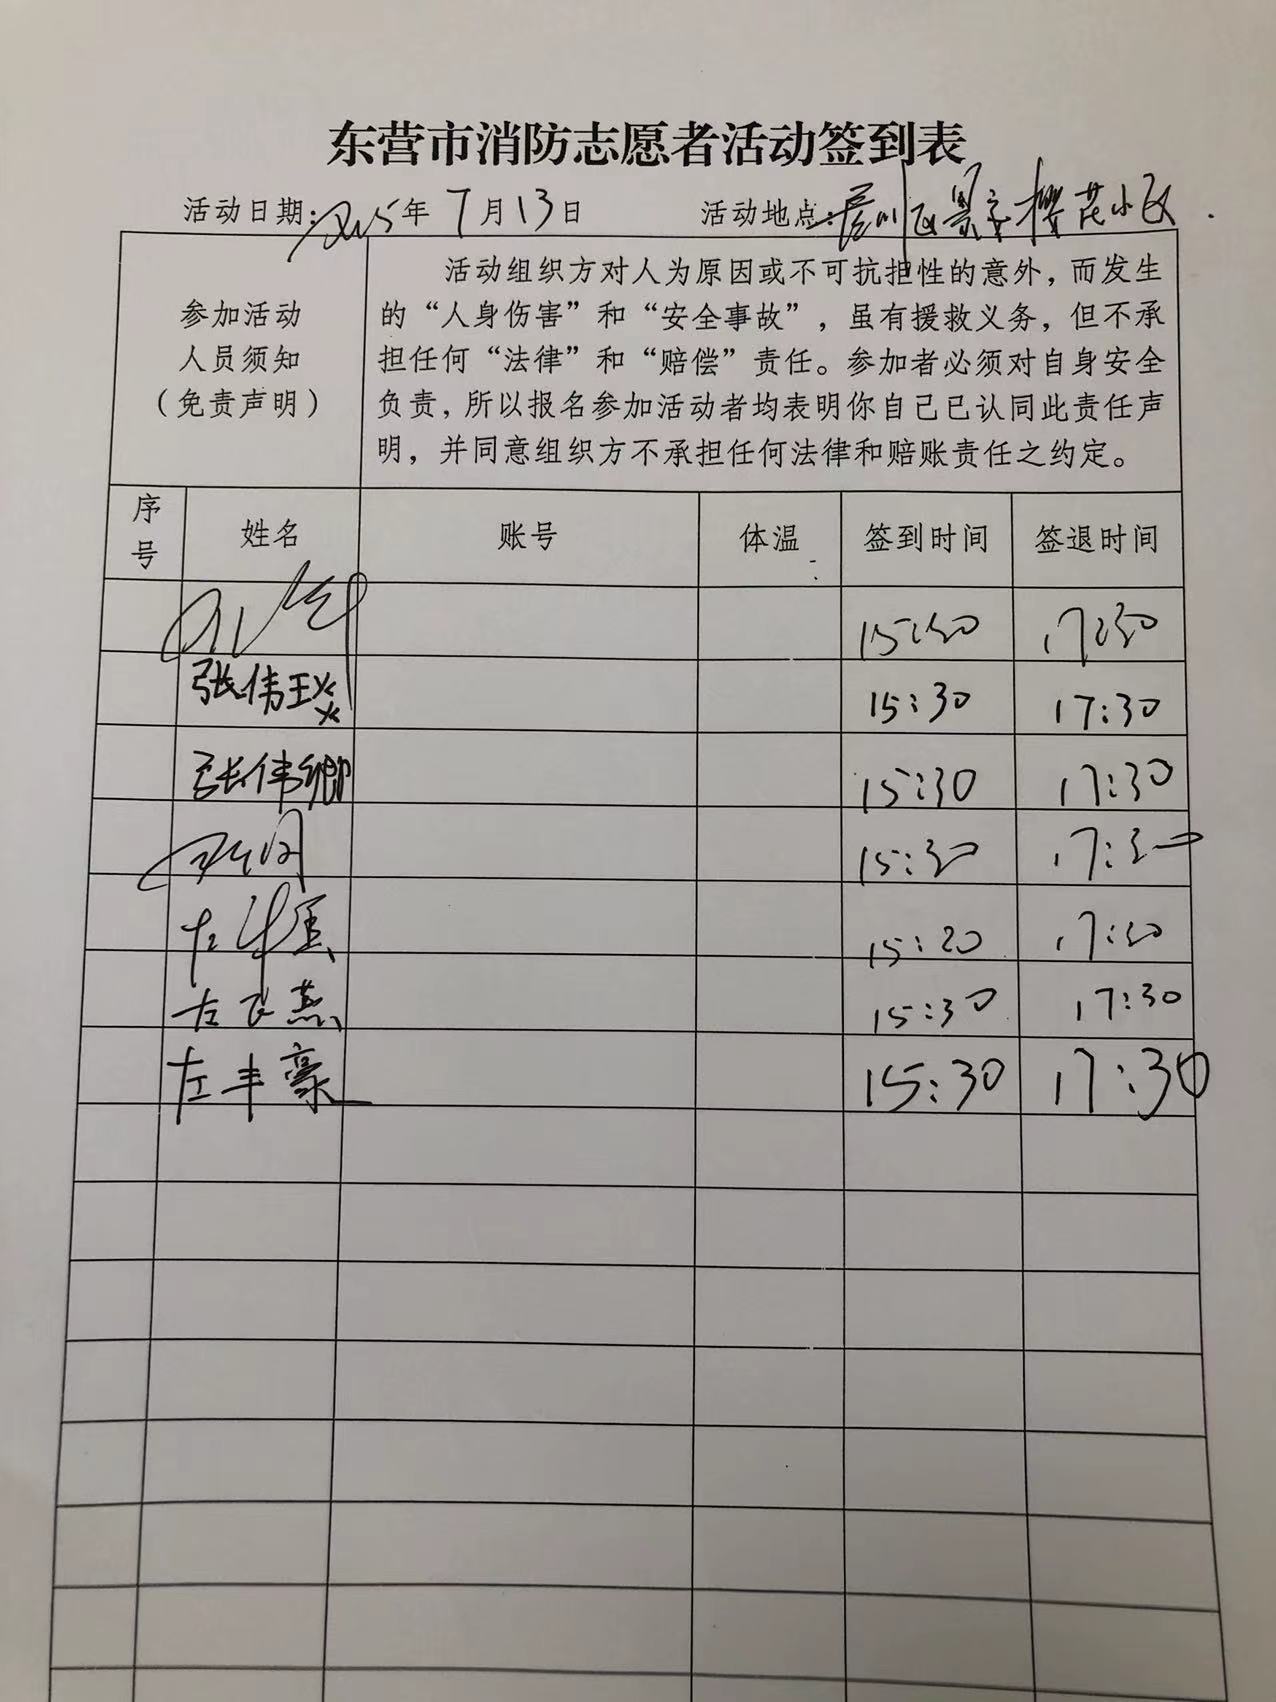 东营市消防志愿者活动签到表
活动日期:2025年7月13日 活动地点: 樱花小区.
参加活动
人员须知
（免责声明）
活动组织方对人为原因或不可抗担性的意外，而发生
的“人身伤害”和“安全事故”，虽有援救义务，但不承
担任何“法律”和“赔偿”责任。参加者必须对自身安全
负责，所以报名参加活动者均表明你自己已认同此责任声
明，并同意组织方不承担任何法律和赔账责任之约定。
序号 姓名 账号 体温 签到时间 签退时间
15:30 17:30
张伟 15:30 17:30
张伟卿 15:30 17:30
15:30 17:30
左 15:20 17:30
左飞燕 15:30 17:30
左丰豪 15:30 17:30